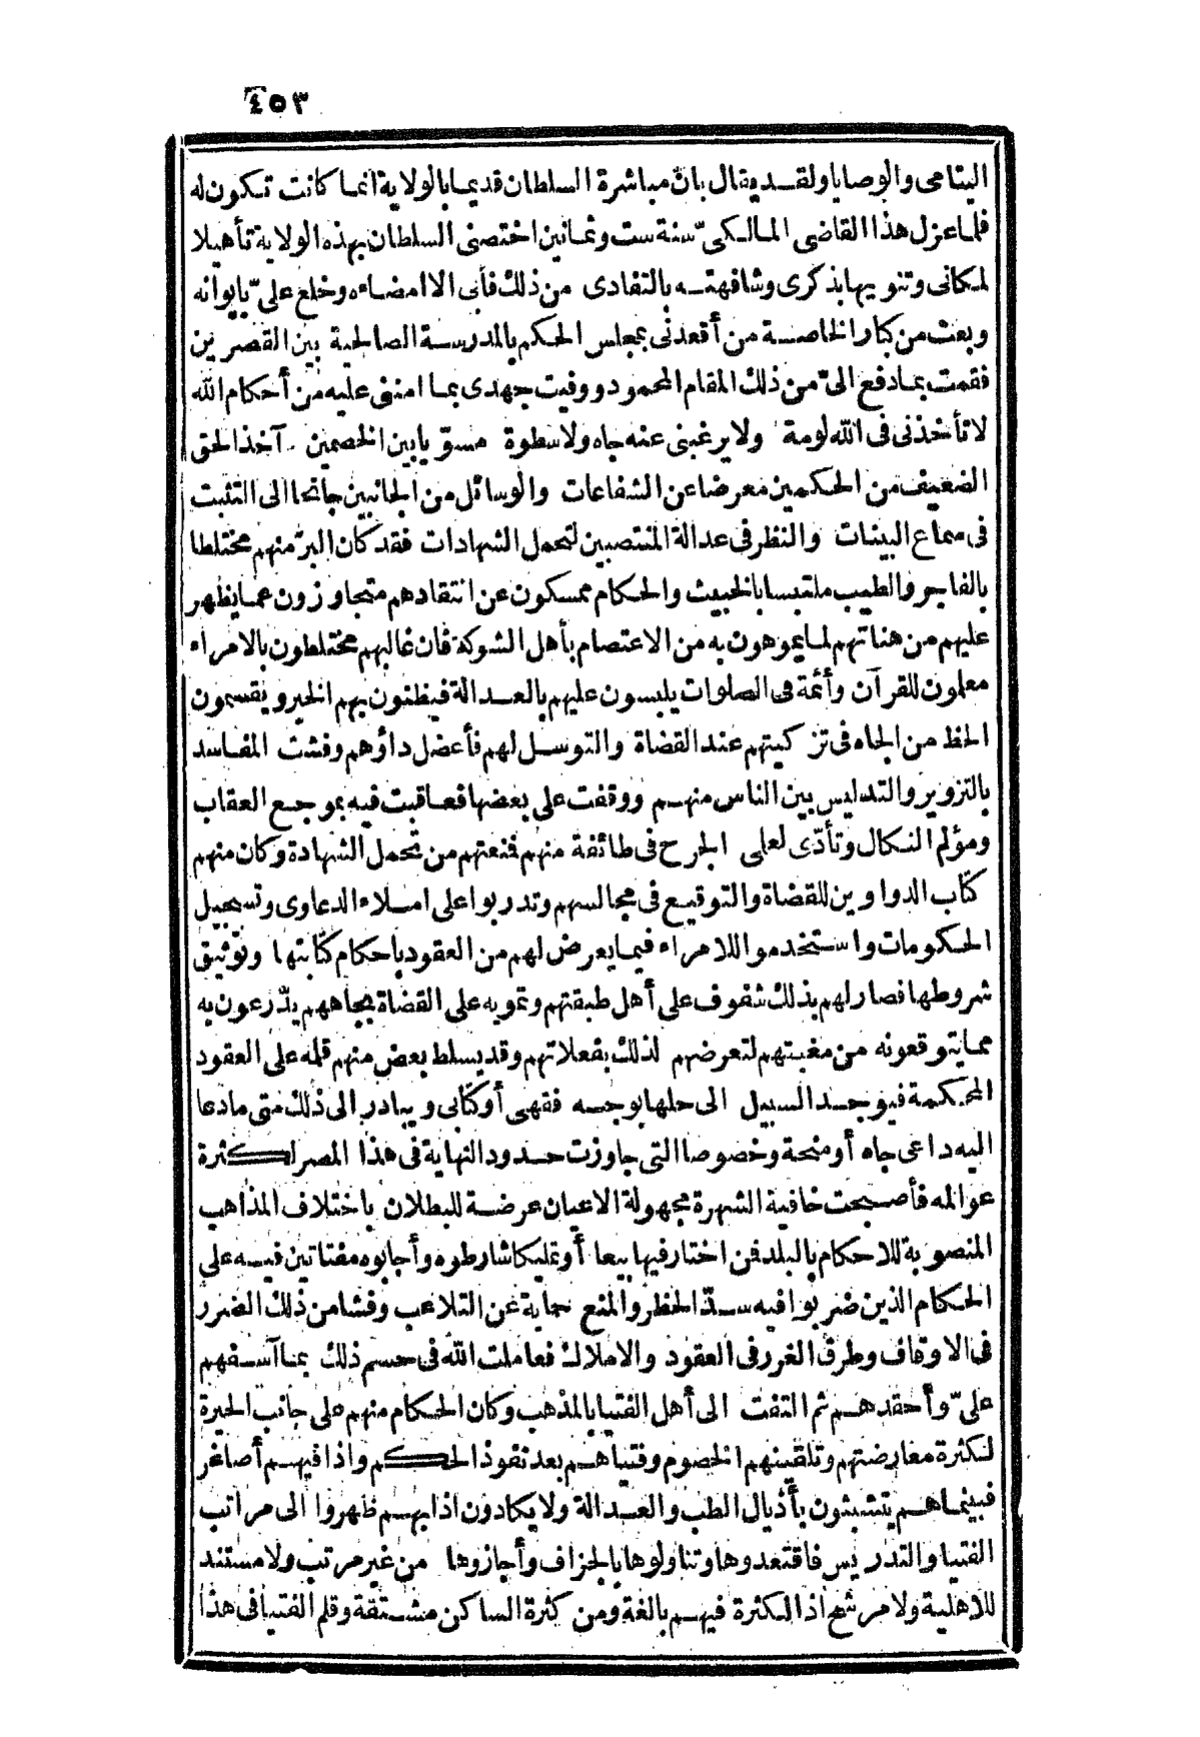 ٤٥٣
اليتامى والوصايا ولقد يقال بان مباشرة السلطان قديما بالولاية انما كانت تكون له
فلما عزل هذا القاضى المالكىّ سنة ست وثمانين اختصنى السلطان بهذه الولاية تأهيلا
لمكانى وتنويها بذكرى وشافهته بالتفادى من ذلك فأبى الا امضاءه وخلع علىّ بايوانه
وبعث من كبار الخاصة من أقعدنى بمجلس الحكم بالمدرسة الصالحية بين القصرين
فقمت بما دفع الىّ من ذلك المقام المحمود ووفيت جهدى بما امننى عليه من أحكام الله
لا تأخذنى فى الله لومة ولا يرغبنى عنه جاه ولا سطوة مسوّيا بين الخصمين آخذ الحق
الضعيف من الحكمين معرضا عن الشفاعات والوسائل من الجانبين جانحا الى التثبت
فى سماع البينات والنظر فى عدالة المنتصبين لتحمل الشهادات فقد كان البرّ منهم مختلطا
بالفاجر والطيب ملتبسا بالخبيث والحكام ممسكون عن انتقادهم متجاوزون عما يظهر
عليهم من هناتهم لما يموهون به من الاعتصام بأهل الشوكة فان غالبهم مختلطون بالامراء
معلمون للقرآن وأئمة فى الصلوات يلبسون عليهم بالعدالة فيظنون بهم الخير ويقسمون
الحظ من الجاه فى تزكيتهم عند القضاة والتوسل لهم فأعضل داؤهم وفشت المفاسد
بالتزوير والتدليس بين الناس منهم ووقفت على بعضها فعاقبت فيه بموجع العقاب
ومؤلم النكال وتأدّى لعلمى الجرح فى طائفة منهم فمنعتهم من تحمل الشهادة وكان منهم
كتّاب الدواوين للقضاة والتوقيع فى مجالسهم وتدربوا على املاء الدعاوى وتسجيل
الحكومات واستخدموا للامراء فيما يعرض لهم من العقود باحكام كتابتها وتوثيق
شروطها فصار لهم بذلك شفوف على أهل طبقتهم وتمويه على القضاة بجاههم يدّرعون به
مما يتوقعونه من مغبتهم لتعرضهم لذلك بفعلاتهم وقد يسلط بعض منهم قلمه على العقود
المحكمة فيوجد السبيل الى حلها بوجه فقهى أو كتابى ويبادر الى ذلك متى ما دعا
اليه داعى جاه أو منحة وخصوصا التى جاوزت حدود النهاية فى هذا المصر لكثرة
عوالمه فأصبحت خافية الشهرة مجهولة الاعيان عرضة للبطلان باختلاف المذاهب
المنصوبة للاحكام بالبلد فمن اختار فيها بيعا أو تمليكا شارطوه وأجابوه مفتاتين فيه على
الحكام الذين ضربوا فيه سدّ الحظر والمنع حماية عن التلاعب وفشا من ذلك الضرر
فى الاوقاف وطرق الغرر فى العقود والاملاك فعاملت الله فى حسم ذلك بما آسفهم
علىّ وأحقدهم ثم التفت الى أهل الفتيا بالمذهب وكان الحكام منهم على جانب الحيرة
لكثرة معارضتهم وتلقينهم الخصوم وفتياهم بعد نفوذ الحكم واذا فيهم أصاغر
فبينما هم يتشبثون بأذيال الطب والعدالة ولا يكادون اذا بهم ظهروا الى مراتب
الفتيا والتدريس فاقتعدوها وتناولوها بالجزاف وأجازوها من غير مرتب ولا مستند
للاهلية ولا مرشح اذ الكثرة فيهم بالغة ومن كثرة الساكن مشتقة وقلم الفتيا فى هذا